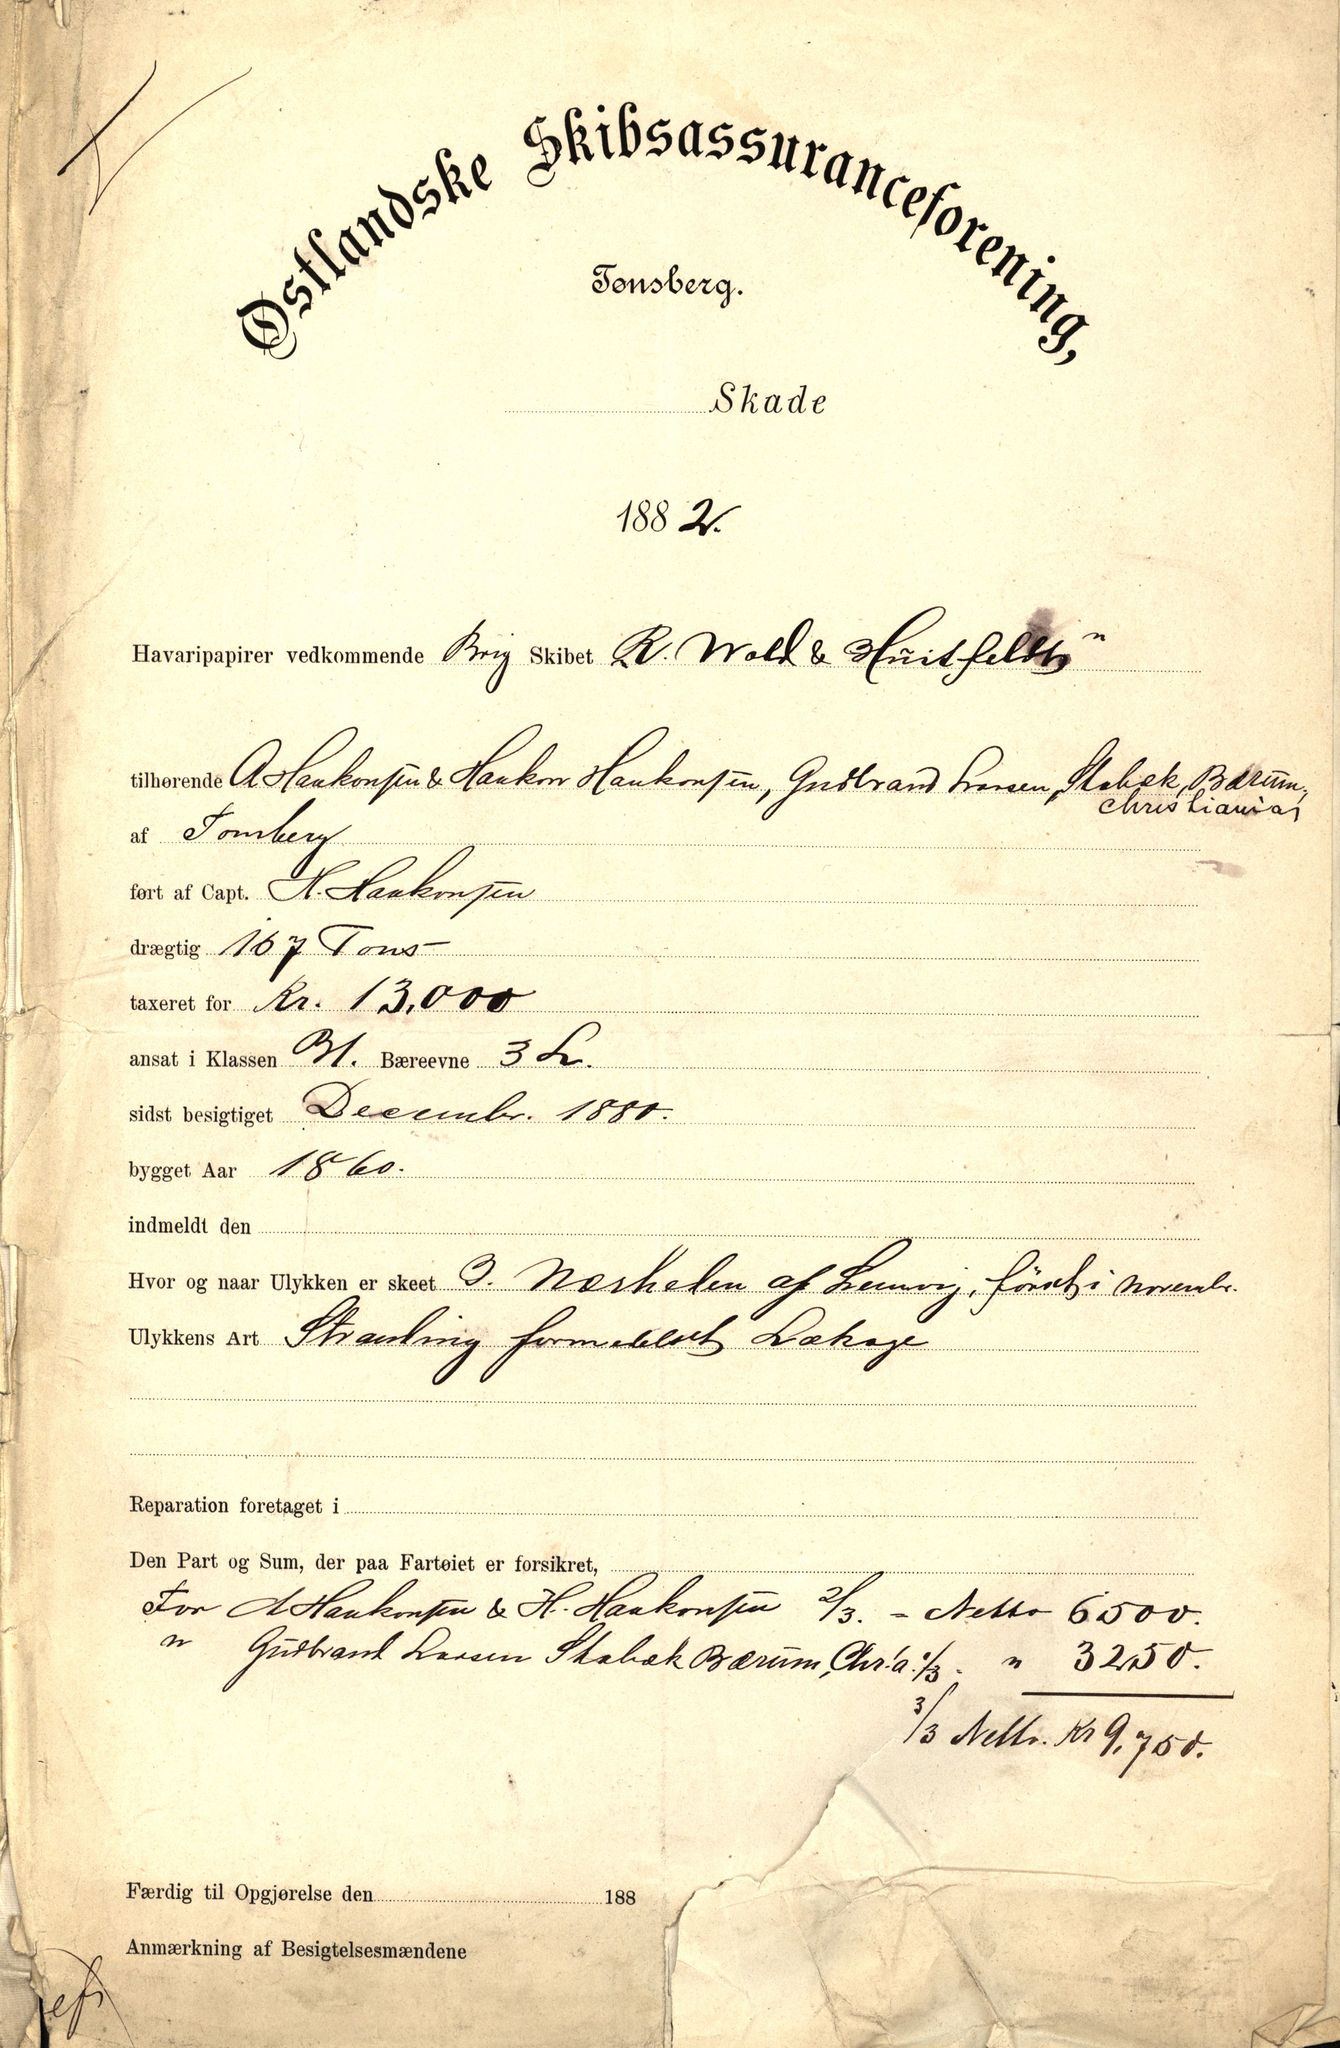 Østlandske Skibsassuranceforening,
Tønsberg.
Skade
1882.
Havaripapirer vedkommende Brig Skibet „R. Wold & Huitfeldt"
tilhørende A Haakonsen & Haakon Haakonsen, Gudbrand Larsen, Stabæk, Bærum,
Christiania,
af Tønsberg
ført af Capt. H. Haakonsen
drægtig 167 Tons
taxeret for Kr. 13,000
ansat i Klassen B1. Bæreevne 3 L.
sidst besigtiget Decembr. 1880.
bygget Aar 1860.
indmeldt den
Hvor og naar Ulykken er skeet I Nærheden af Lemvig, først i Novembr.
Ulykkens Art Stranding formedelst Lækage
Reparation foretaget i
Den Part og Sum, der paa Fartøiet er forsikret,
For A Haakonsen & H. Haakonsen 2/3. - Netto 6500.
" Gudbrand Larsen Stabæk Bærum, Chr.a. 1/3. " 3250.
3/3 Netto. Kr 9,750.
Færdig til Opgjørelse den 188
Anmærkning af Besigtelsesmændene